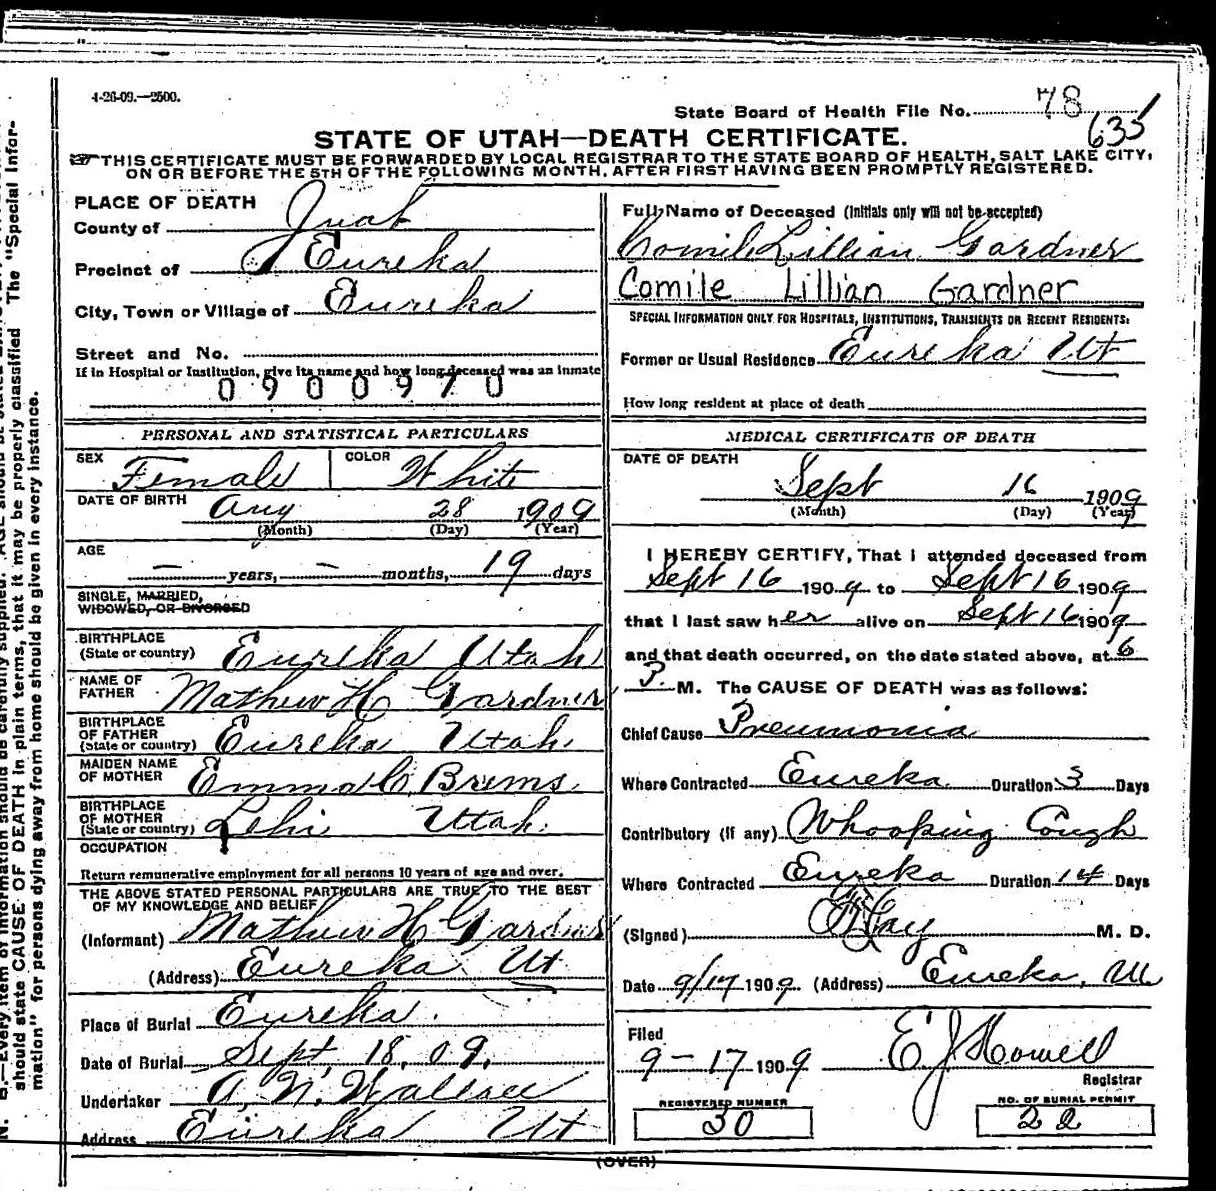 4-26-09.—2500.
State Board of Health File No. 78
635
STATE OF UTAH—DEATH CERTIFICATE.
THIS CERTIFICATE MUST BE FORWARDED BY LOCAL REGISTRAR TO THE STATE BOARD OF HEALTH, SALT LAKE CITY,
ON OR BEFORE THE 5TH OF THE FOLLOWING MONTH, AFTER FIRST HAVING BEEN PROMPTLY REGISTERED.
PLACE OF DEATH
County of Juab
Precinct of Eureka
City, Town or Village of Eureka
Street and No.
If in Hospital or Institution, give its name and how long deceased was an inmate
0900970
PERSONAL AND STATISTICAL PARTICULARS
SEX Female COLOR White
DATE OF BIRTH Aug 28 1909
(Month) (Day) (Year)
AGE
— years, — months, 19 days
SINGLE, MARRIED,
WIDOWED, OR DIVORCED
BIRTHPLACE
(State or country) Eureka Utah
NAME OF
FATHER Mathew H Gardner
BIRTHPLACE
OF FATHER
(State or country) Eureka Utah.
MAIDEN NAME
OF MOTHER Emma C. Brems.
BIRTHPLACE
OF MOTHER
(State or country) Lehi Utah.
OCCUPATION
Return remunerative employment for all persons 10 years of age and over.
THE ABOVE STATED PERSONAL PARTICULARS ARE TRUE TO THE BEST
OF MY KNOWLEDGE AND BELIEF
(Informant) Mathew H Gardner
(Address) Eureka Ut
Place of Burial Eureka.
Date of Burial Sept, 18, 09,
Undertaker A. N. Wallace
Address Eureka Ut
Full Name of Deceased (Initials only will not be accepted)
Comile Lillian Gardner
Comile Lillian Gardner
SPECIAL INFORMATION ONLY FOR HOSPITALS, INSTITUTIONS, TRANSIENTS OR RECENT RESIDENTS:
Former or Usual Residence Eureka Ut
How long resident at place of death
MEDICAL CERTIFICATE OF DEATH
DATE OF DEATH
Sept 16 1909
(Month) (Day) (Year)
I HEREBY CERTIFY, That I attended deceased from
Sept 16 1909 to Sept 16 1909
that I last saw her alive on Sept 16 1909
and that death occurred, on the date stated above, at 6
P. M. The CAUSE OF DEATH was as follows:
Chief Cause Pneumonia
Where Contracted Eureka Duration 3 Days
Contributory (if any) Whooping Cough
Where Contracted Eureka Duration 14 Days
(Signed) Hay M. D.
Date 9/17 1909. (Address) Eureka, Ut
Filed
9-17 1909 E J Howell
Registrar
REGISTERED NUMBER
30
NO. OF BURIAL PERMIT
22
(OVER)
N. B.—Every item of information should be carefully supplied. AGE should be stated
should state CAUSE OF DEATH in plain terms, that it may be properly classified The "Special Infor-
mation" for persons dying away from home should be given in every instance.